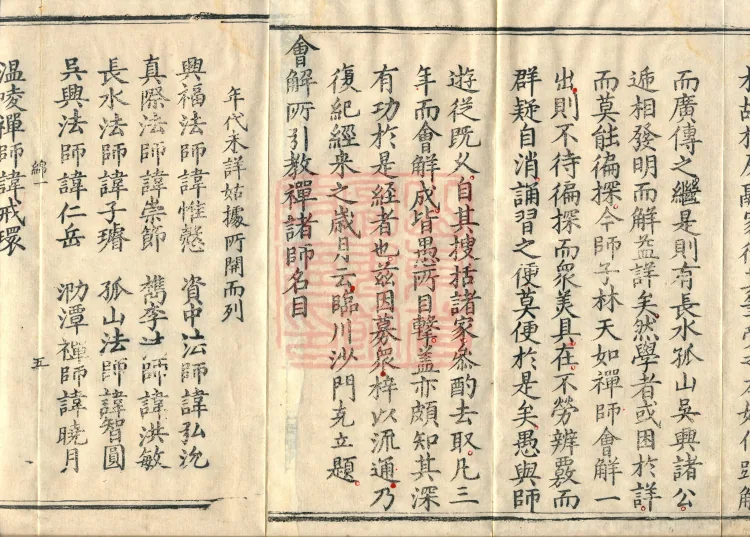 而廣傳之繼是則有長水孤山吳興諸公
遞相發明而解益詳矣然學者或困於詳
而莫能徧探今師子林天如禪師會解一
出則不待徧探而衆美具在不勞辨覈而
群疑自消誦習之便莫便於是矣愚與師
遊從既久自其搜括諸家叅酌去取凡三
年而會解成皆愚所目擊蓋亦頗知其深
有功於是經者也茲因募衆梓以流通乃
復紀經來之歲月云臨川沙門克立題
會解所引教禪諸師名目
年代未詳姑據所開而列
興福法師諱惟慤 資中法師諱弘沇
真際法師諱崇節 檇李法師諱洪敏
長水法師諱子璿 孤山法師諱智圓
吳興法師諱仁岳 泐潭禪師諱曉月
綿一 五
温陵禪師諱戒環